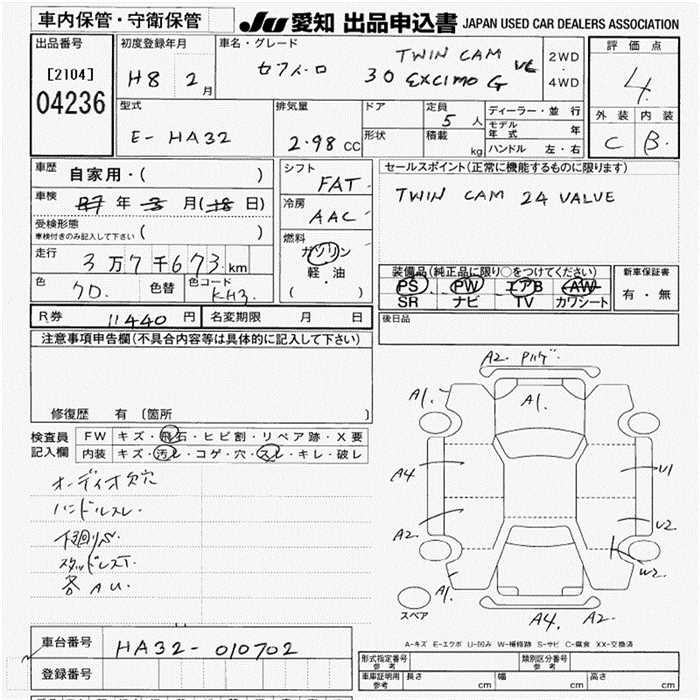 車内保管・守衛保管 JU 愛知 出品申込書 JAPAN USED CAR DEALERS ASSOCIATION
出品番号 初度登録年月 車名・グレード 評価点
[2104] H8 2月 セフィーロ 30 TWIN CAM 2WD
04236 EXCIMO G 4WD 4.
外装 内装
C B.
型式 排気量 ドア 定員 ディーラー・並行
E-HA32 2.98 CC 5人 モデル年式 年
形状 積載 kg ハンドル 左・右
車歴 自家用・( ) シフト FAT セールスポイント(正常に機能するものに限ります)
車検 年 月( 日) 冷房 AAC TWIN CAM 24 VALUE
受検形態 車検付きのみ記入して下さい ( ) 燃料 ガソリン
走行 3万7千673km 軽・油
( )
色 色替 色コード KH3 装備品(純正品に限り○をつけてください) 新車保証書
PS PW エアB AW
SR ナビ TV カワシート 有・無
R券 11440円 名変期限 月 日 後日品
注意事項申告欄(不具合内容等は具体的に記入して下さい)
修復歴 有 〔箇所 〕
検査員記入欄 FW キズ・飛石・ヒビ割・リペア跡・X要
内装 キズ・汚レ・コゲ・穴・スレ・キレ・破レ
オーディオ欠穴
ハンドルスレ.
下回りS.
スタッドレス
各AU.
A2.
A1.
A1.
A4
U1
A2.
U2
W2
A1.
A4. A2.
スペア
A-キズ E-エクボ U-凹み W-補修跡 S-サビ C-腐食 XX-交換済
車台番号 HA32-010702
登録番号
形式指定番号 参考 類別区分番号 参考
車庫証明用 参考 長さ cm 幅 cm 高さ cm